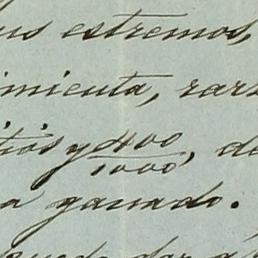 us estremos,
imienta, rar
tios y 400/1000, de
a ganado.